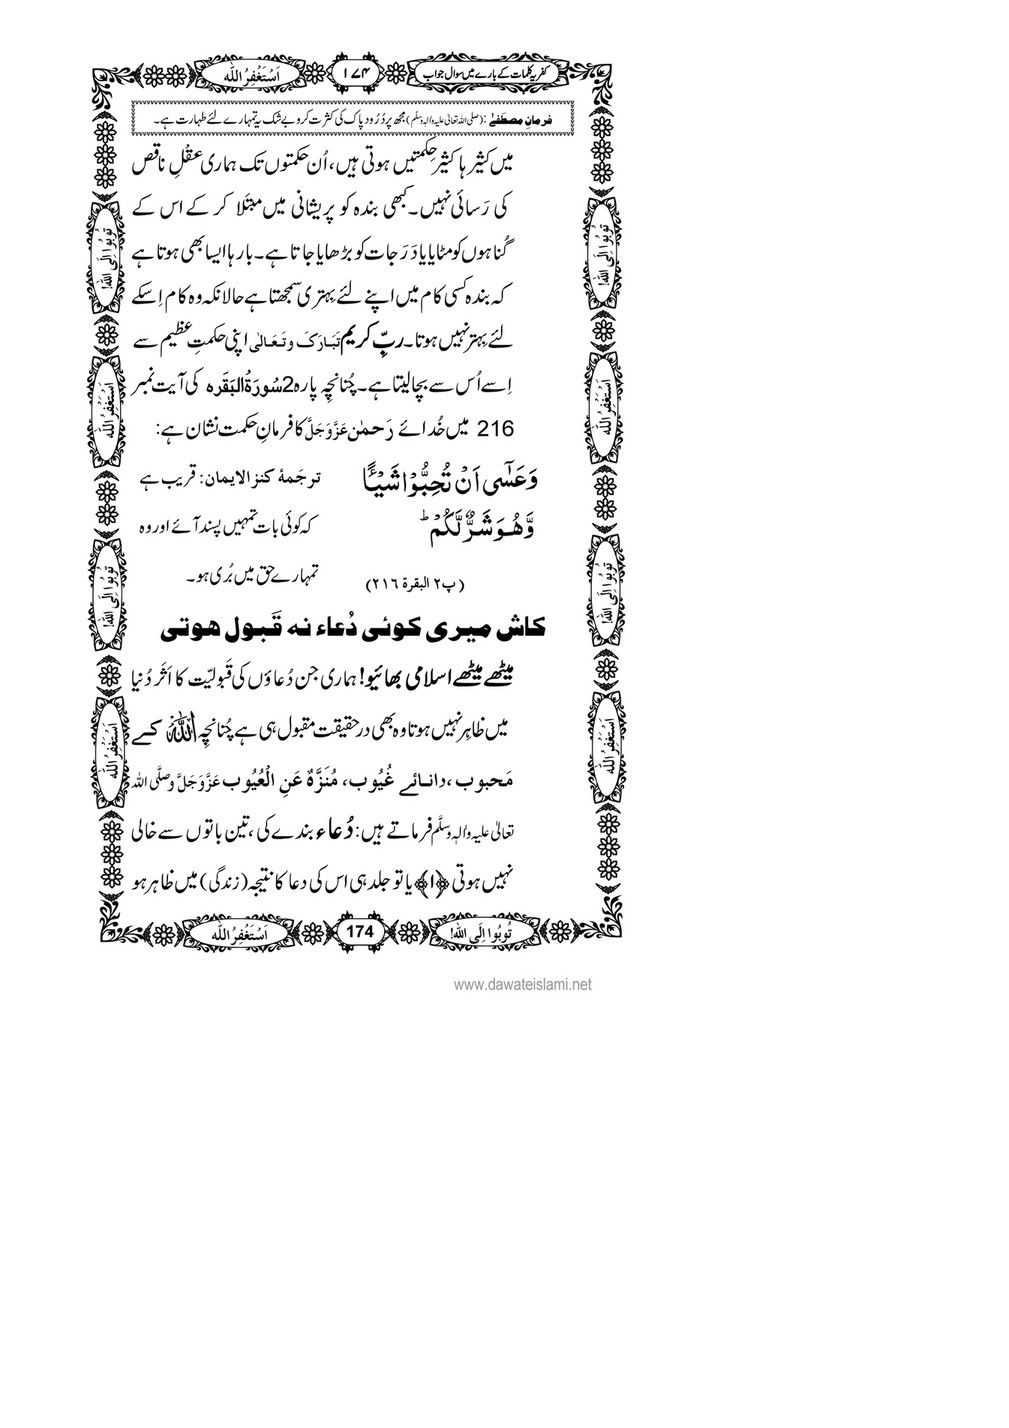 کفریہ کلمات کے بارے میں سوال جواب
۱۷۴
اَسْتَغْفِرُاللّٰه
فرمانِ مصطَفٰے :(صلی اللہ تعالیٰ علیہ والہ وسلّم) مجھ پر دُرُود پاک کی کثرت کرو بے شک یہ تمہارے لئے طہارت ہے۔
میں کثیر ہا کثیر حِکمتیں ہوتی ہیں، اُن حکمتوں تک ہماری عقْلِ ناقص
کی رَسائی نہیں۔ کبھی بندہ کو پریشانی میں مبتَلا کر کے اس کے
گُناہوں کو مٹایا یا دَرَجات کو بڑھایا جاتا ہے۔ بارہا ایسا بھی ہوتا ہے
کہ بندہ کسی کام میں اپنے لئے بہتری سمجھتا ہے حالانکہ وہ کام اِسکے
لئے بہتر نہیں ہوتا۔ ربِّ کریم تَبارَکَ وتَعَالٰی اپنی حکمتِ عظیم سے
اِسے اُس سے بچا لیتا ہے۔ چُنانچِہ پارہ 2 سُورَۃُ البَقَرہ کی آیت نمبر
216 میں خُدائے رَحمٰن عَزَّوَجَلَّ کا فرمانِ حکمت نشان ہے:
وَعَسٰۤی اَنۡ تُحِبُّوۡا شَیۡـًٔا
وَّ هُوَ شَرٌّ لَّكُمۡ ؕ
(پ۲ البقرۃ ۲۱٦)
ترجَمۂ کنز الایمان: قریب ہے
کہ کوئی بات تمہیں پسند آئے اور وہ
تمہارے حق میں بُری ہو۔
کاش میری کوئی دُعاء نہ قَبول ہوتی
میٹھے میٹھے اسلامی بھائیو! ہماری جن دُعاؤں کی قَبولیّت کا اَثَر دُنیا
میں ظاہِر نہیں ہوتا وہ بھی درحقیقت مقبول ہی ہے چُنانچِہ اللّٰہ کے
مَحبوب ،دانائے غُیُوب، مُنَزَّہٌ عَنِ الْعُیُوب عَزَّوَجَلَّ وصلَّی اللہ
تعالیٰ علیہ والہٖ وسلَّم فرماتے ہیں: دُعاء بندے کی ،تین باتوں سے خالی
نہیں ہوتی ﴿۱﴾ یا تو جلد ہی اس کی دعا کا نتیجہ (زندگی) میں ظاہر ہو
تُوبُوا اِلَی اللّٰه!
174
اَسْتَغْفِرُاللّٰه
تُوبُوا اِلَی اللّٰه!
اَسْتَغْفِرُاللّٰه
تُوبُوا اِلَی اللّٰه!
اَسْتَغْفِرُاللّٰه
تُوبُوا اِلَی اللّٰه!
اَسْتَغْفِرُاللّٰه
تُوبُوا اِلَی اللّٰه!
اَسْتَغْفِرُاللّٰه
www.dawateislami.net